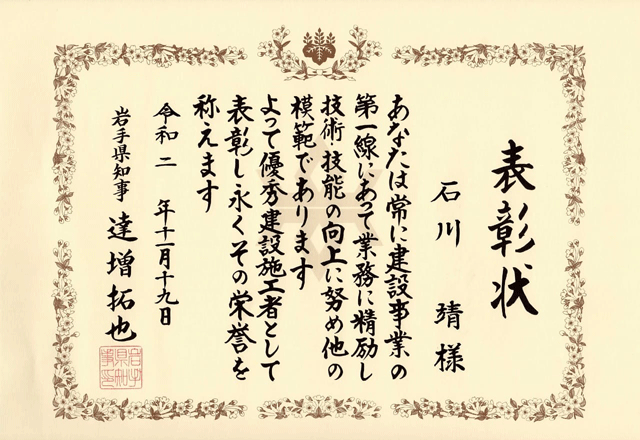 表彰状
石川 靖様
あなたは常に建設事業の
第一線にあって業務に精励し
技術・技能の向上に努め他の
模範であります
よって優秀建設施工者として
表彰し永くその栄誉を
称えます
令和二年十一月十九日
岩手県知事 達増拓也
岩手県知事印